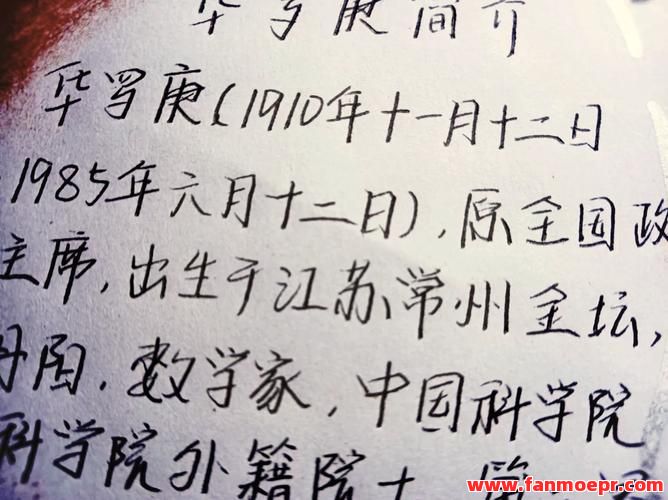 华罗庚简介
华罗庚(1910年十一月十二日
1985年六月十二日),原全国政
主席,出生于江苏常州金坛,
数学家,中国科学院
科学院外籍院士
www.fanmoepr.com